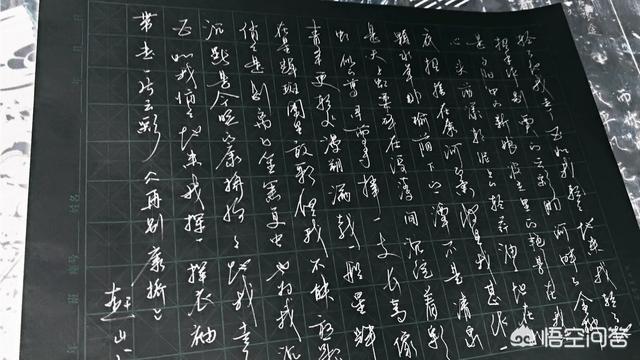 轻轻的我走了正如我轻轻地来我轻轻
招手作别西天的云彩那河畔的金柳
是夕阳中的新娘波光里的艳影在我
心头荡漾软泥上的青荇油油地在
底招摇在康河的柔波里我甘心
水草那榆荫下的一潭不是清泉
是天上虹揉碎在浮藻间沉淀着彩
虹似的梦寻梦撑一支长篙像
青草更青处漫溯满载一船星辉
在星辉斑斓里放歌但我不能放歌
悄悄是别离的笙箫夏虫也为我沉
沉默是今晚的康桥悄悄地我走
正如我悄悄地来我挥一挥衣袖
带走一片云彩《再别康桥》
赵山
姓名
悟空问答